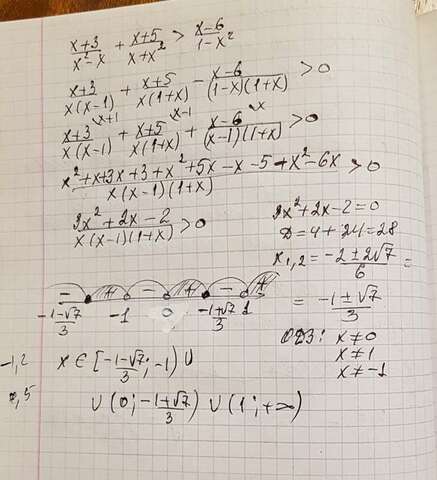 x+3/x²-x + x+5/x+x² > x-6/1-x²
x+3/x(x-1) + x+5/x(1+x) - x-6/(1-x)(1+x) > 0
x+3/x(x-1) x+1 + x+5/x(1+x) x-1 + x-6/(x-1)(1+x) x > 0
x²+x+3x+3+x²+5x-x-5+x²-6x/x(x-1)(1+x) > 0
3x²+2x-2/x(x-1)(1+x) > 0
3x²+2x-2=0
D=4+24=28
x1,2 = -2±2√7/6 =
= -1±√7/3
ОДЗ: x≠0
x≠1
x≠-1
- + - + - +
-1-√7/3 -1 0 -1+√7/3 1
-1,2 x ∈ [-1-√7/3; -1) ∪
∪ (0; -1+√7/3) ∪ (1; +∞)